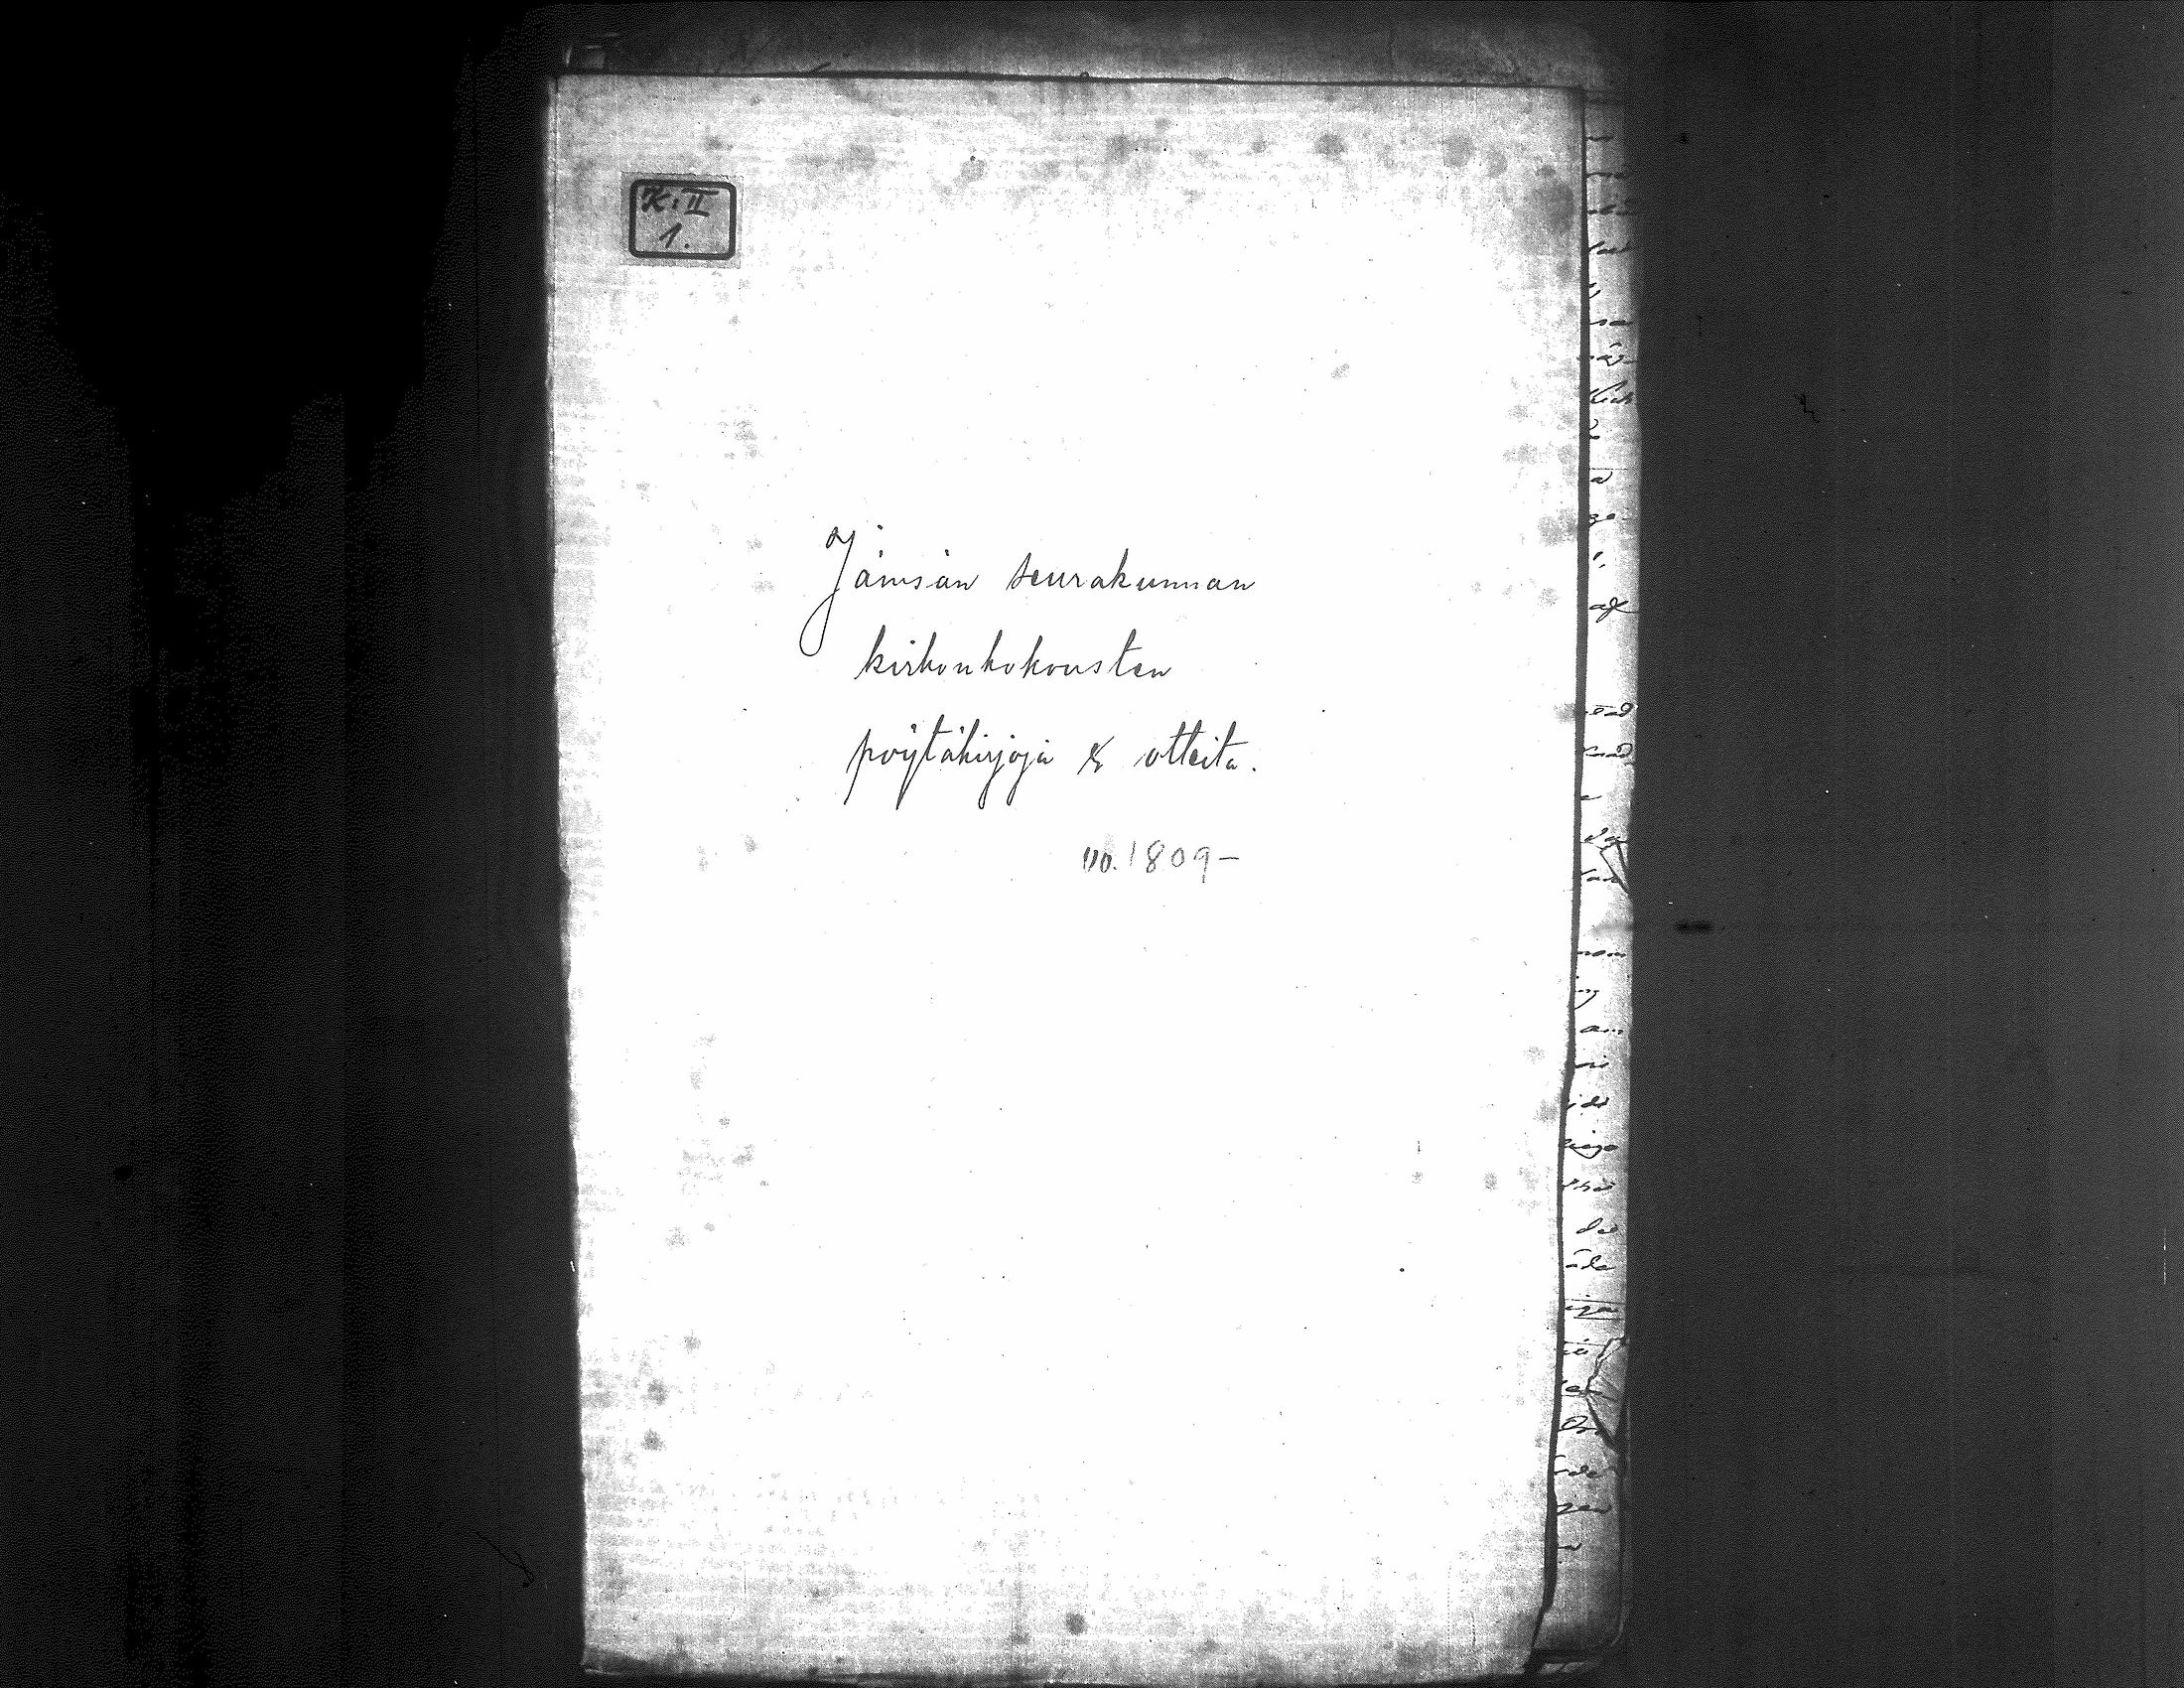 K. II
1.
Jämsän seurakunnan
kirkonkokousten
pöytäkirjoja & otteita.
vv. 1809-